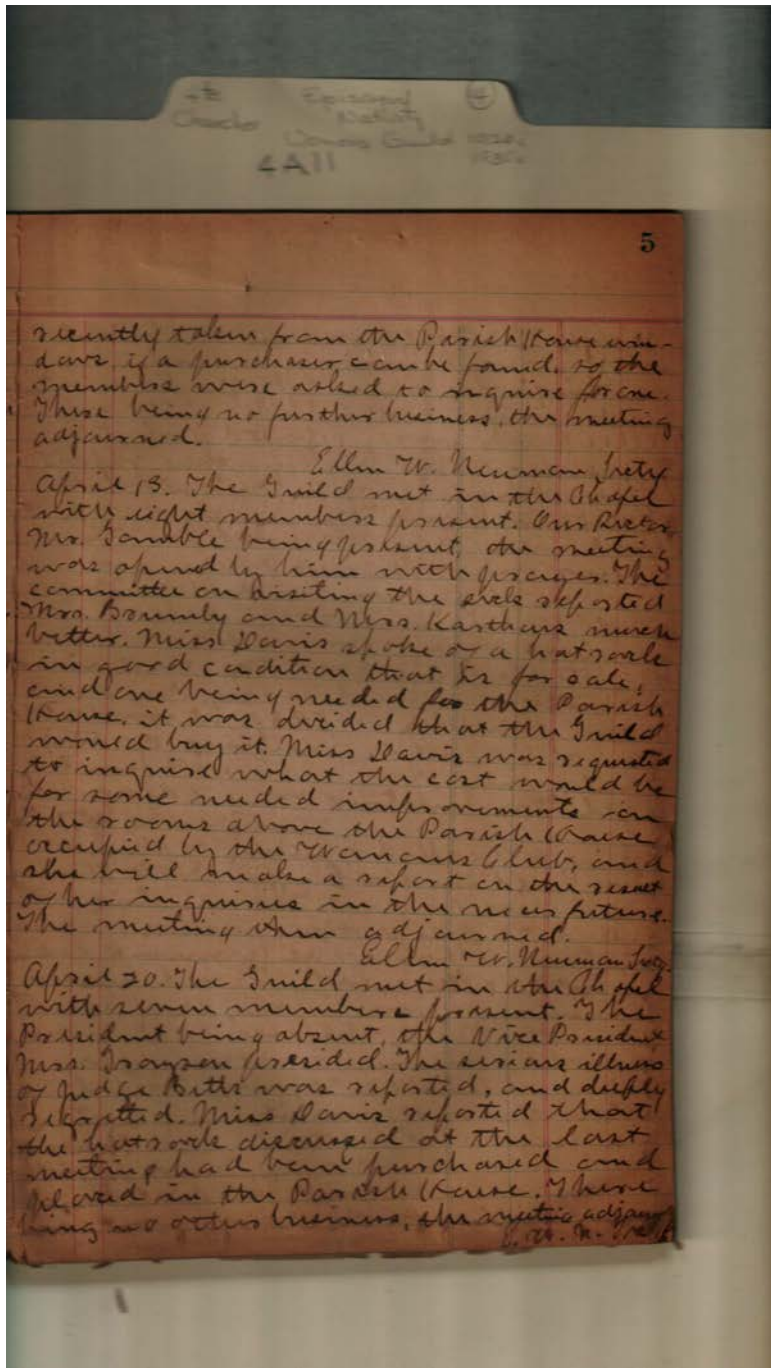 Episcopal ④
Church Nativity
Womans Guild
4A11
5
recently taken from the Parish House win-
dows, if a purchaser can be found, so the
members were asked to inquire for one.
There being no further business, the meeting
adjourned.
Ellen W. Neuman, Secty.
April 13. The Guild met in the Chapel
with eight members present. Our Rector,
Mr. Gamble being present, the meeting
was opened by him with prayer. The
committee on visiting the sick reported
Mrs. Brumby and Mrs. Karthaus much
better. Miss Davis spoke of a hatrack
in good condition that is for sale,
and one being needed for the Parish
House, it was decided that the Guild
would buy it. Miss Davis was requested
to inquire what the cost would be
for some needed improvements in
the rooms above the Parish House
occupied by the Womans Club, and
she will make a report on the result
of her inquiries in the near future.
The meeting then adjourned.
Ellen W. Neuman Secty.
April 20. The Guild met in the Chapel
with seven members present. The
President being absent, the Vice President
Mrs. Grayson presided. The serious illness
of Judge Betts was reported, and deeply
regretted. Miss Davis reported that
the hatrack discussed at the last
meeting had been purchased and
placed in the Parish House. There
being no other business, the meeting adjourned
E. W. N.